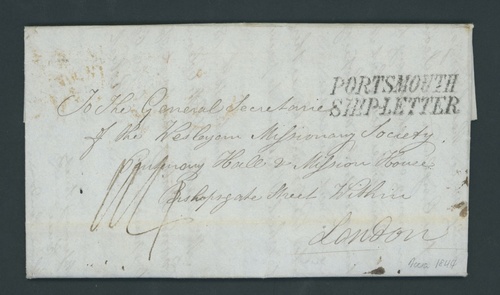 PORTSMOUTH
SHIP-LETTER
To the General Secretaries
of the Wesleyan Missionary Society
Centenary Hall & Mission House
Bishopsgate Street Within
London